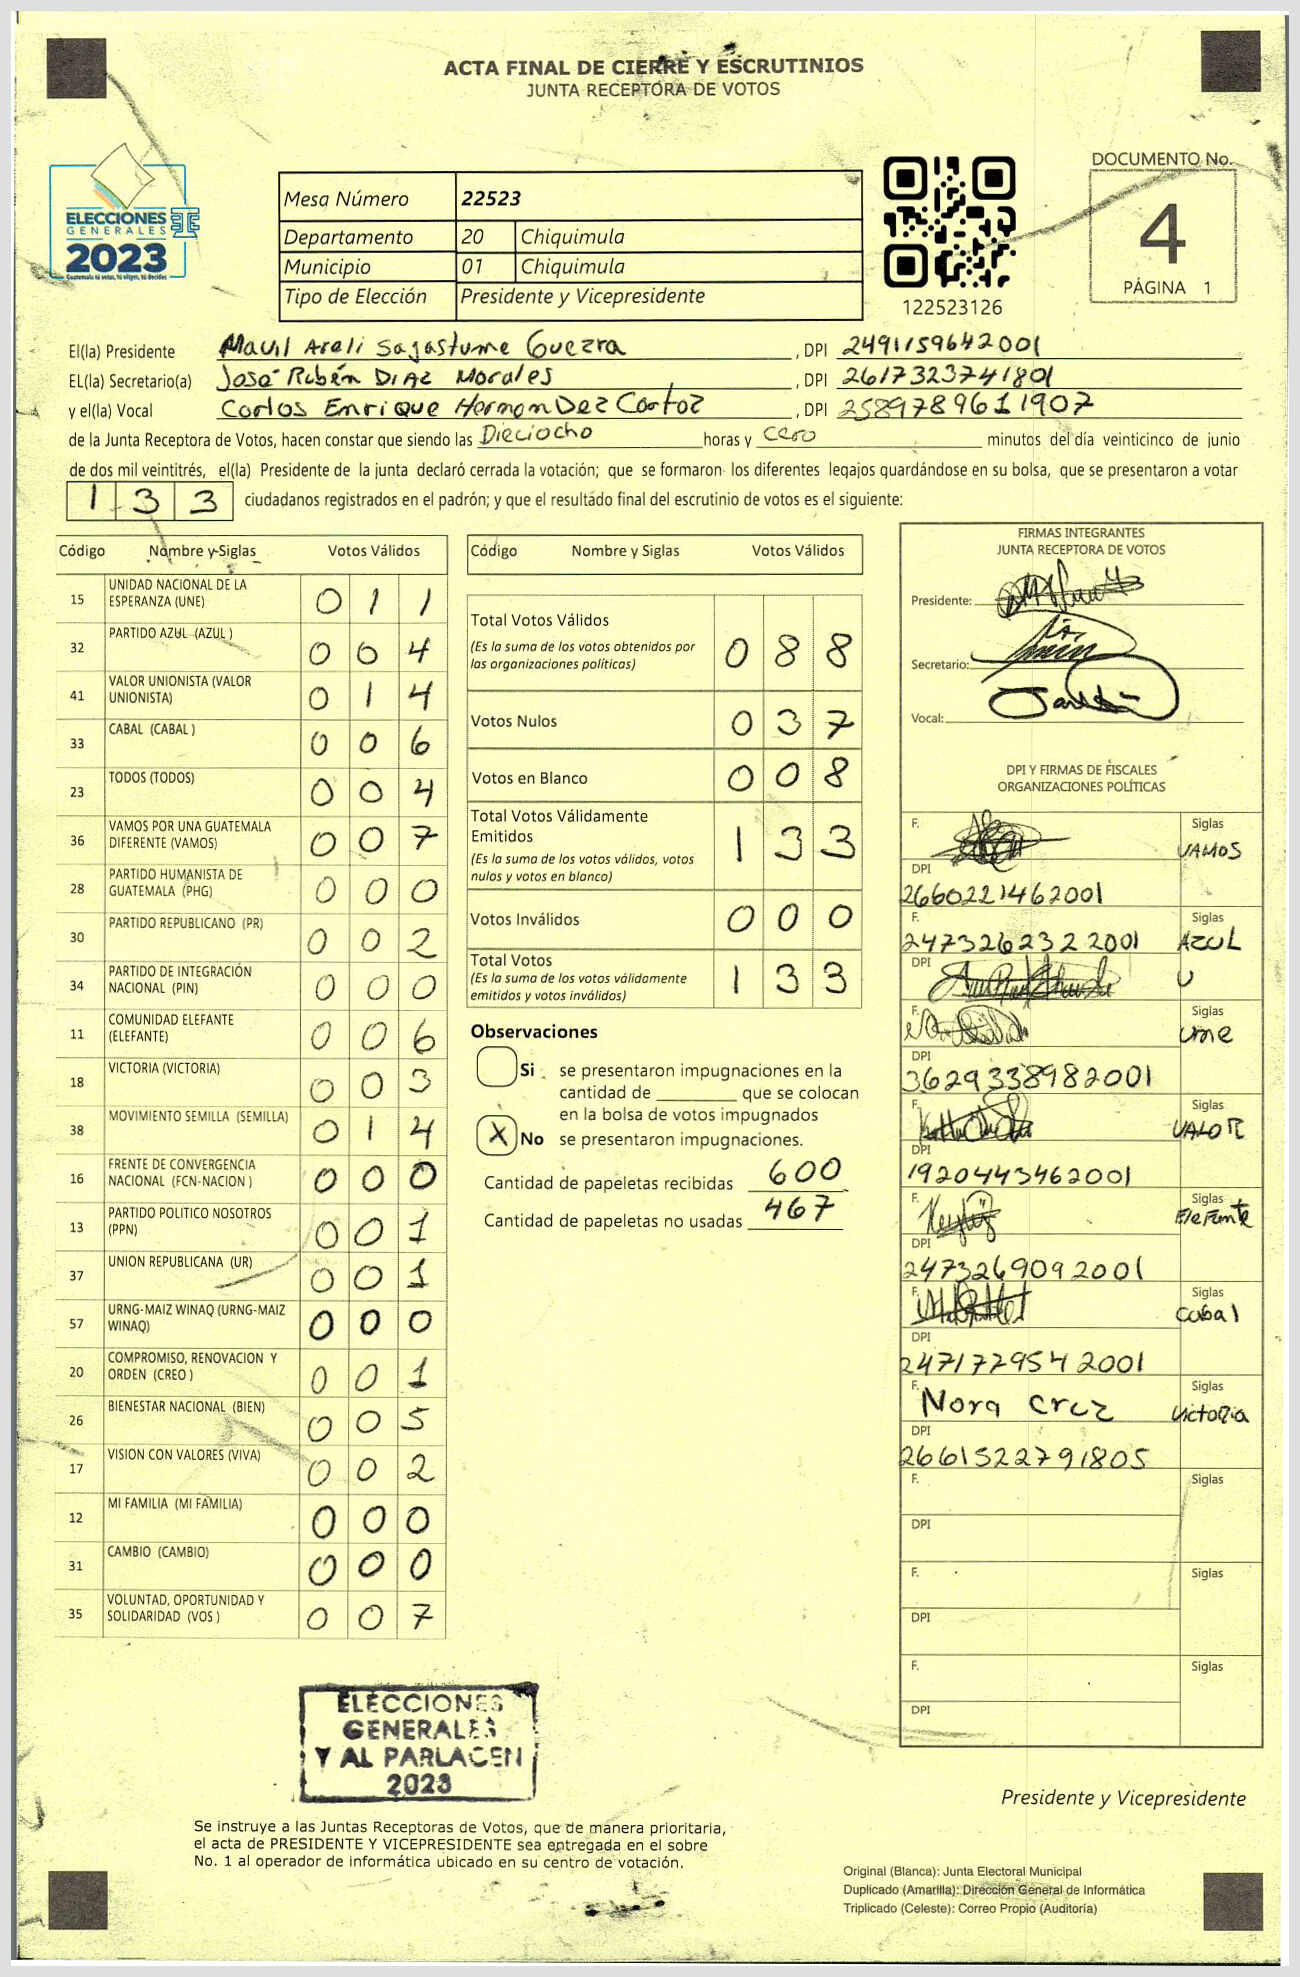 ACTA FINAL DE CIERRE Y ESCRUTINIOS
JUNTA RECEPTORA DE VOTOS
ELECCIONES
GENERALES
2023
Guatemala tú votas, tú eliges, tú decides
Mesa Número 22523
Departamento 20 Chiquimula
Municipio 01 Chiquimula
Tipo de Elección Presidente y Vicepresidente
122523126
DOCUMENTO No.
4
PÁGINA 1
El(la) Presidente Mavil Areli Sagastume Guerra, DPI 2491159642001
EL(la) Secretario(a) José Rubén DIAZ Morales, DPI 2617323741801
y el(la) Vocal Carlos Enrique HernanDez Cortoz, DPI 2589789611907
de la Junta Receptora de Votos, hacen constar que siendo las Dieciocho horas y cero minutos del día veinticinco de junio
de dos mil veintitrés, el(la) Presidente de la junta declaró cerrada la votación; que se formaron los diferentes legajos guardándose en su bolsa, que se presentaron a votar
133 ciudadanos registrados en el padrón; y que el resultado final del escrutinio de votos es el siguiente:
Código Nombre y Siglas Votos Válidos
15 UNIDAD NACIONAL DE LA ESPERANZA (UNE) 011
32 PARTIDO AZUL (AZUL ) 004
41 VALOR UNIONISTA (VALOR UNIONISTA) 014
33 CABAL (CABAL ) 006
23 TODOS (TODOS) 004
36 VAMOS POR UNA GUATEMALA DIFERENTE (VAMOS) 007
28 PARTIDO HUMANISTA DE GUATEMALA (PHG) 000
30 PARTIDO REPUBLICANO (PR) 002
34 PARTIDO DE INTEGRACIÓN NACIONAL (PIN) 000
11 COMUNIDAD ELEFANTE (ELEFANTE) 006
18 VICTORIA (VICTORIA) 003
38 MOVIMIENTO SEMILLA (SEMILLA) 014
16 FRENTE DE CONVERGENCIA NACIONAL (FCN-NACION ) 000
13 PARTIDO POLITICO NOSOTROS (PPN) 001
37 UNION REPUBLICANA (UR) 001
57 URNG-MAIZ WINAQ (URNG-MAIZ WINAQ) 000
20 COMPROMISO, RENOVACION Y ORDEN (CREO ) 001
26 BIENESTAR NACIONAL (BIEN) 005
17 VISION CON VALORES (VIVA) 002
12 MI FAMILIA (MI FAMILIA) 000
31 CAMBIO (CAMBIO) 000
35 VOLUNTAD, OPORTUNIDAD Y SOLIDARIDAD (VOS ) 007
Código Nombre y Siglas Votos Válidos
Total Votos Válidos 088
(Es la suma de los votos obtenidos por
las organizaciones políticas)
Votos Nulos 037
Votos en Blanco 008
Total Votos Válidamente
Emitidos 133
(Es la suma de los votos válidos, votos
nulos y votos en blanco)
Votos Inválidos 000
Total Votos 133
(Es la suma de los votos válidamente
emitidos y votos inválidos)
Observaciones
Si se presentaron impugnaciones en la
cantidad de ________ que se colocan
en la bolsa de votos impugnados
X No se presentaron impugnaciones.
Cantidad de papeletas recibidas 600
Cantidad de papeletas no usadas 467
FIRMAS INTEGRANTES
JUNTA RECEPTORA DE VOTOS
Presidente:
Secretario:
Vocal:
DPI Y FIRMAS DE FISCALES
ORGANIZACIONES POLÍTICAS
F. Siglas
VAMOS
DPI
2660221462001
F. Siglas
2473262322001 AZUL
DPI
U
F. Siglas
une
DPI
3629338982001
F. Siglas
VALOR
DPI
1920443462001
F. Siglas
Elefante
DPI
2473269092001
F. Siglas
Cabal
DPI
2471779542001
F. Siglas
Nora Cruz Victoria
DPI
2661522791805
F. Siglas
DPI
F. Siglas
DPI
F. Siglas
DPI
ELECCIONES
GENERALES
Y AL PARLACEN
2023
Presidente y Vicepresidente
Se instruye a las Juntas Receptoras de Votos, que de manera prioritaria,
el acta de PRESIDENTE Y VICEPRESIDENTE sea entregada en el sobre
No. 1 al operador de informática ubicado en su centro de votación.
Original (Blanca): Junta Electoral Municipal
Duplicado (Amarilla): Dirección General de Informática
Triplicado (Celeste): Correo Propio (Auditoría)